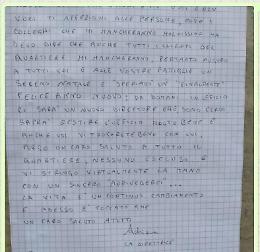 VUOI TI AFFEZIONI ALLE PERSONE, AI
COLLEGHI CHE MI MANCHERANNO MOLTISSIMO MA
DEVO DIRE CHE ANCHE TUTTI I CLIENTI DEL
QUARTIERE MI MANCHERANNO, PERTANTO AUGURO
A TUTTI VOI E ALLE VOSTRE FAMIGLIE UN
SERENO NATALE E SPERIAMO UN "FINALMENTE"
FELICE ANNO NUOVO; DA DOMANI IN UFFICIO
CI SARÀ UN NUOVO DIRETTORE CHE, SONO CERTA
SAPRÀ GESTIRE L'UFFICIO MOLTO BENE E
ANCHE VOI VI TROVERETE BENE CON LUI,
PORGO UN CARO SALUTO A TUTTO IL
QUARTIERE, NESSUNO ESCLUSO E
VI STRINGO VIRTUALMENTE LA MANO
CON UN SINCERO "ARRIVEDERCI"...
LA VITA È UN CONTINUO CAMBIAMENTO
E ADESSO È TOCCATO A ME
UN CARO SALUTO A TUTTI
LA DIRETTRICE